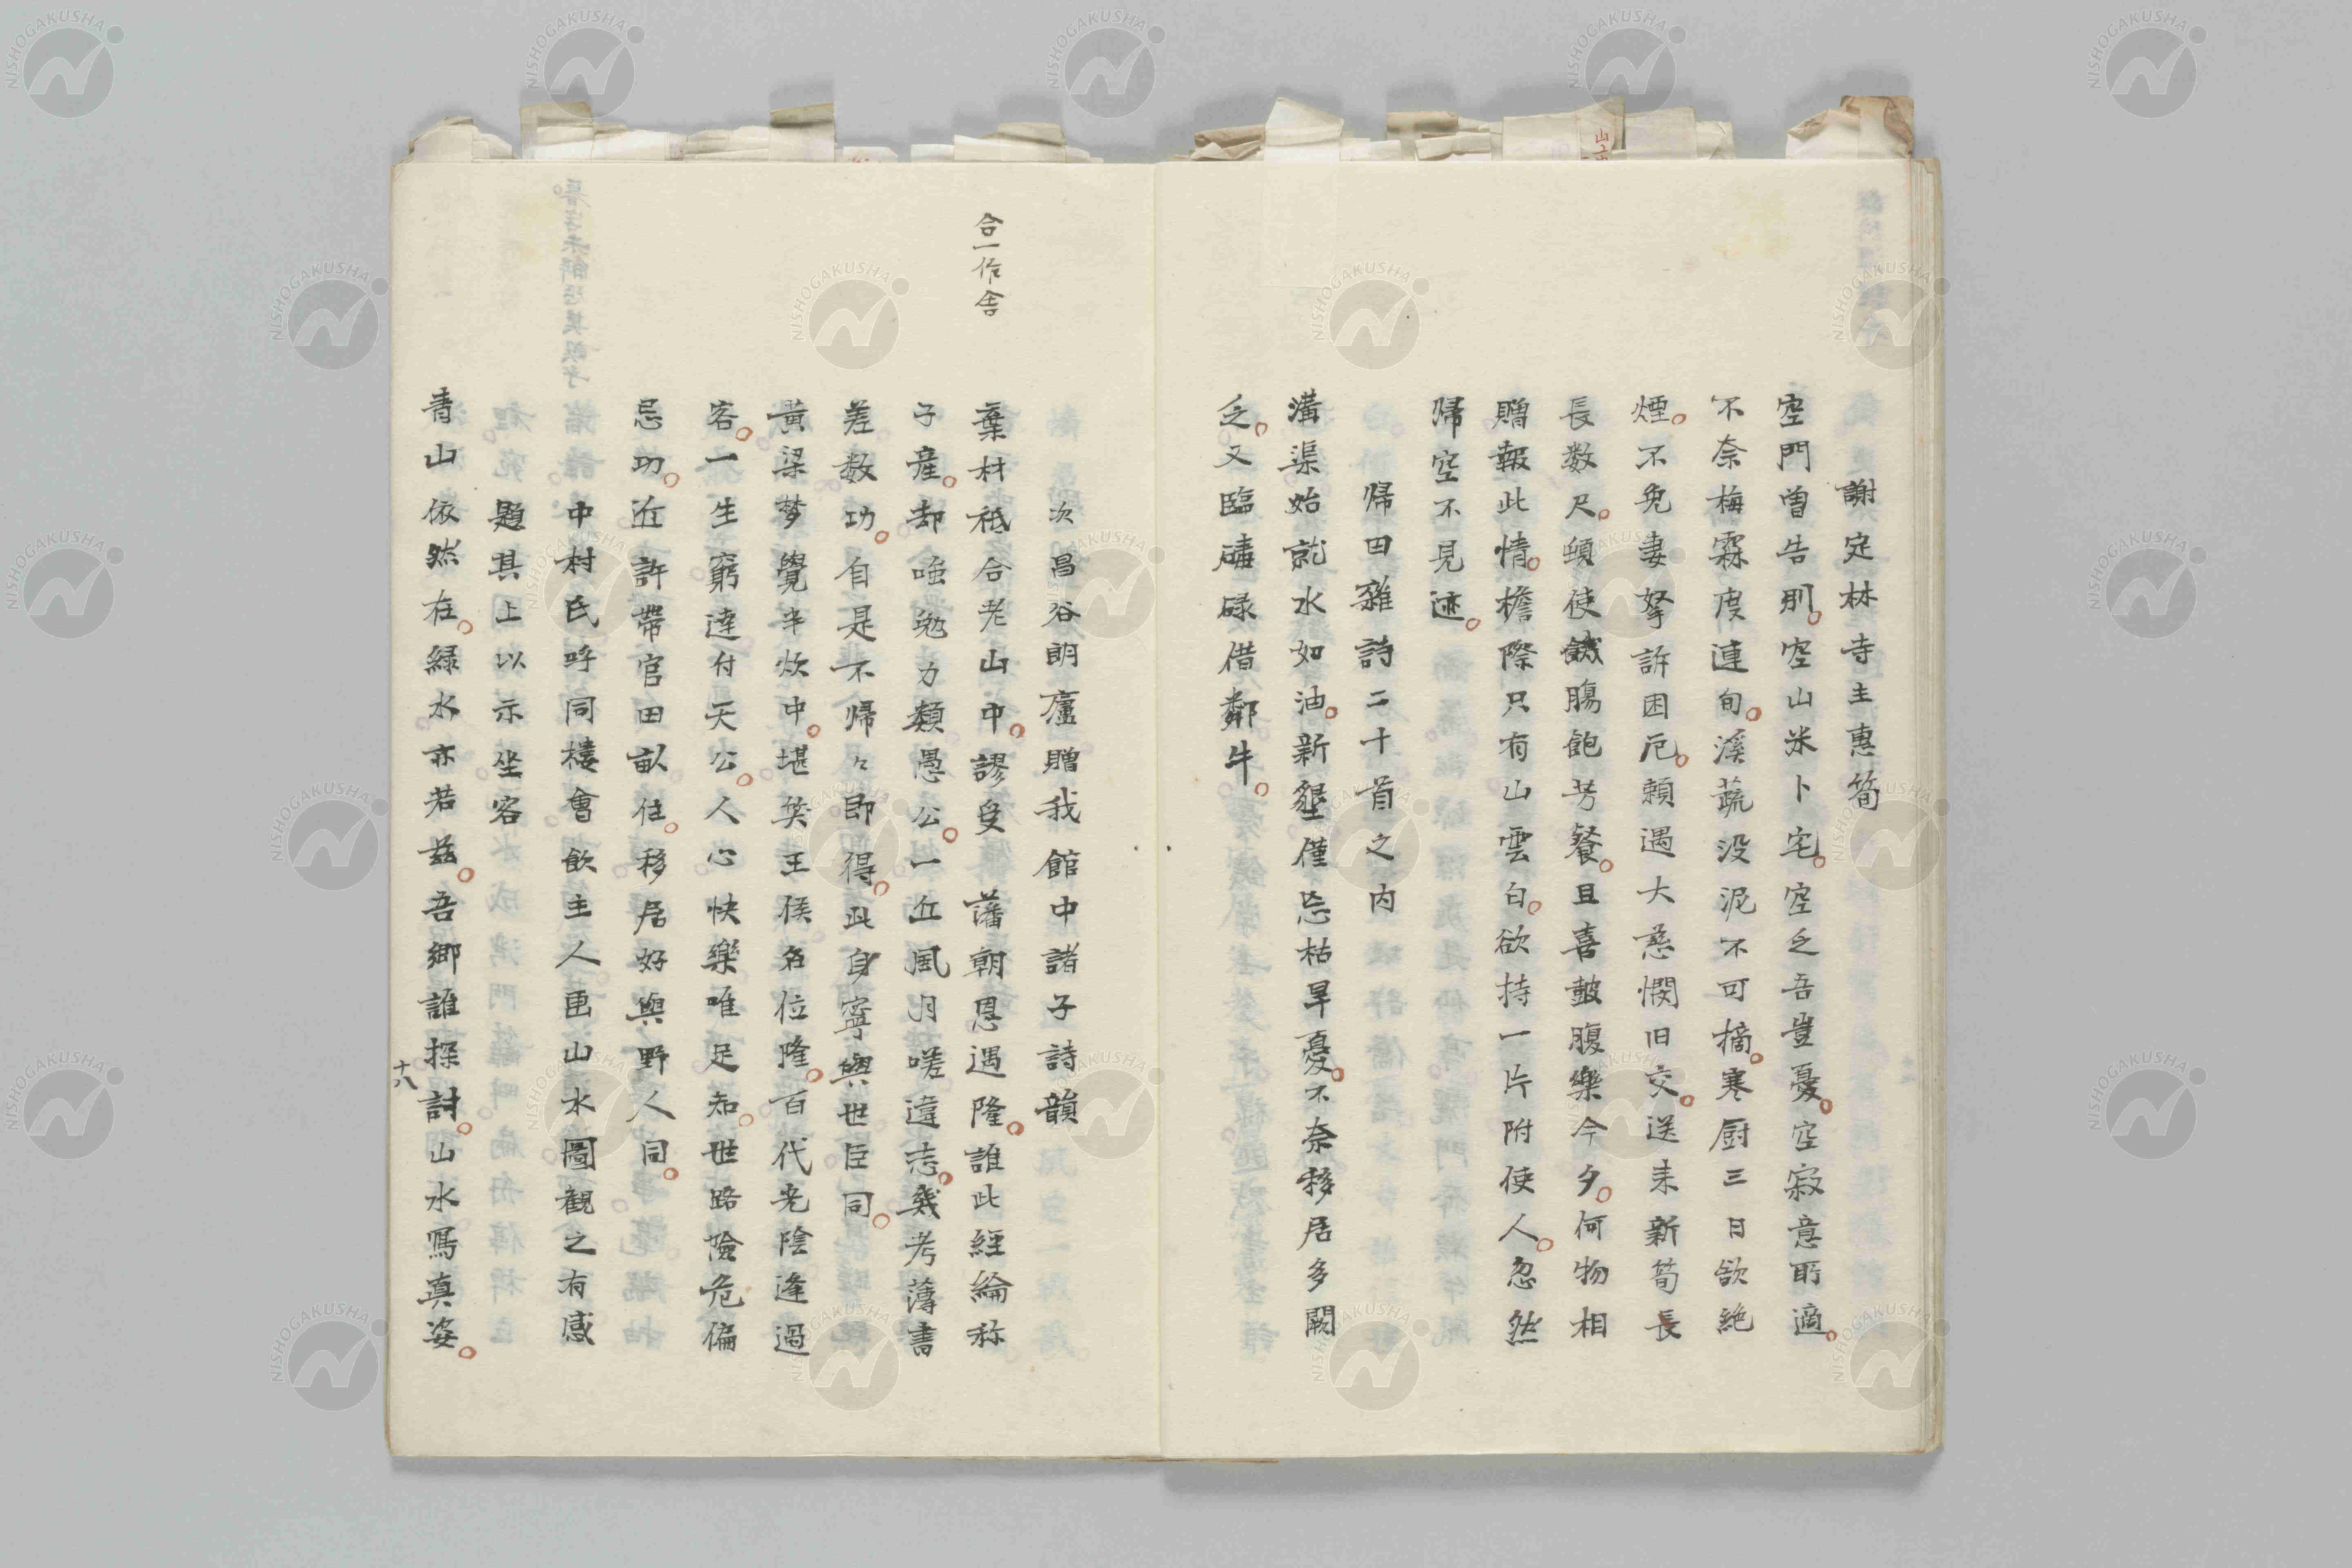 謝定林寺主惠筍
空門曾告別空山米卜宅空乏吾豈憂空寂意所適
不奈梅霖度連旬溪蔬没泥不可摘寒厨三日欲絶
煙不免妻孥訴困厄頼遇大慈憫旧交送来新筍長
長数尺頓使饑腸飽芳餐且喜鼓腹樂今夕何物相
贈報此情檐際只有山雲白欲持一片附使人忽然
帰空不見迹
帰田雜詩二十首之内
溝渠始就水如油新墾僅忘枯旱憂不奈移居多闕
乏又臨磽碌借鄰牛
次昌谷朗廬贈我館中諸子詩韻
合一作舎
棄材祇合老山中謬受藩朝恩遇隆誰此經綸称
子産却唯勉力類愚公一丘風月嗟違志幾考薄書
差数功自是不帰々即得此身寧與世臣同
黃梁梦覺半炊中堪笑王侯名位隆百代光陰逢過
客一生窮達付天公人心快樂唯足知世路險危偏
忌功近許帶官田畝住移居好與野人同
中村氏呼同樓會飲主人画山水圖観之有感
題其上以示坐客
青山依然在緑水亦若茲吾郷誰探討山水寫真姿
十八
NISHOGAKUSHA